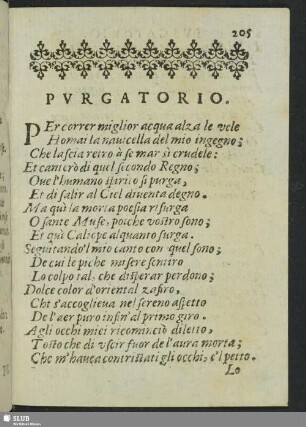 205
PVRGATORIO.
PEr correr miglior acqua alza le vele
Homai la nauicella del mio ingegno;
Che lascia retro à se mar sì crudele:
Et canterò di quel secondo Regno;
Oue l'humano spirito si purga,
Et di salir al Ciel diuenta degno.
Ma quì la morta poesia risurga
O sante Muse, poiche vostro sono;
Et quì Caliope alquanto surga.
Seguitando'l mio canto con quel sono;
De cui le piche misere sentiro
Lo colpo tal, che disperar perdono;
Dolce color d'oriental zafiro,
Che s'accoglieua nel sereno aspetto
De l'aer puro insin'al primo giro.
Agli occhi miei ricominciò diletto,
Tosto che di vscir fuor de l'aura morta;
Che m'hauea contristati gli occhi, e'l petto.
Lo
SLUB